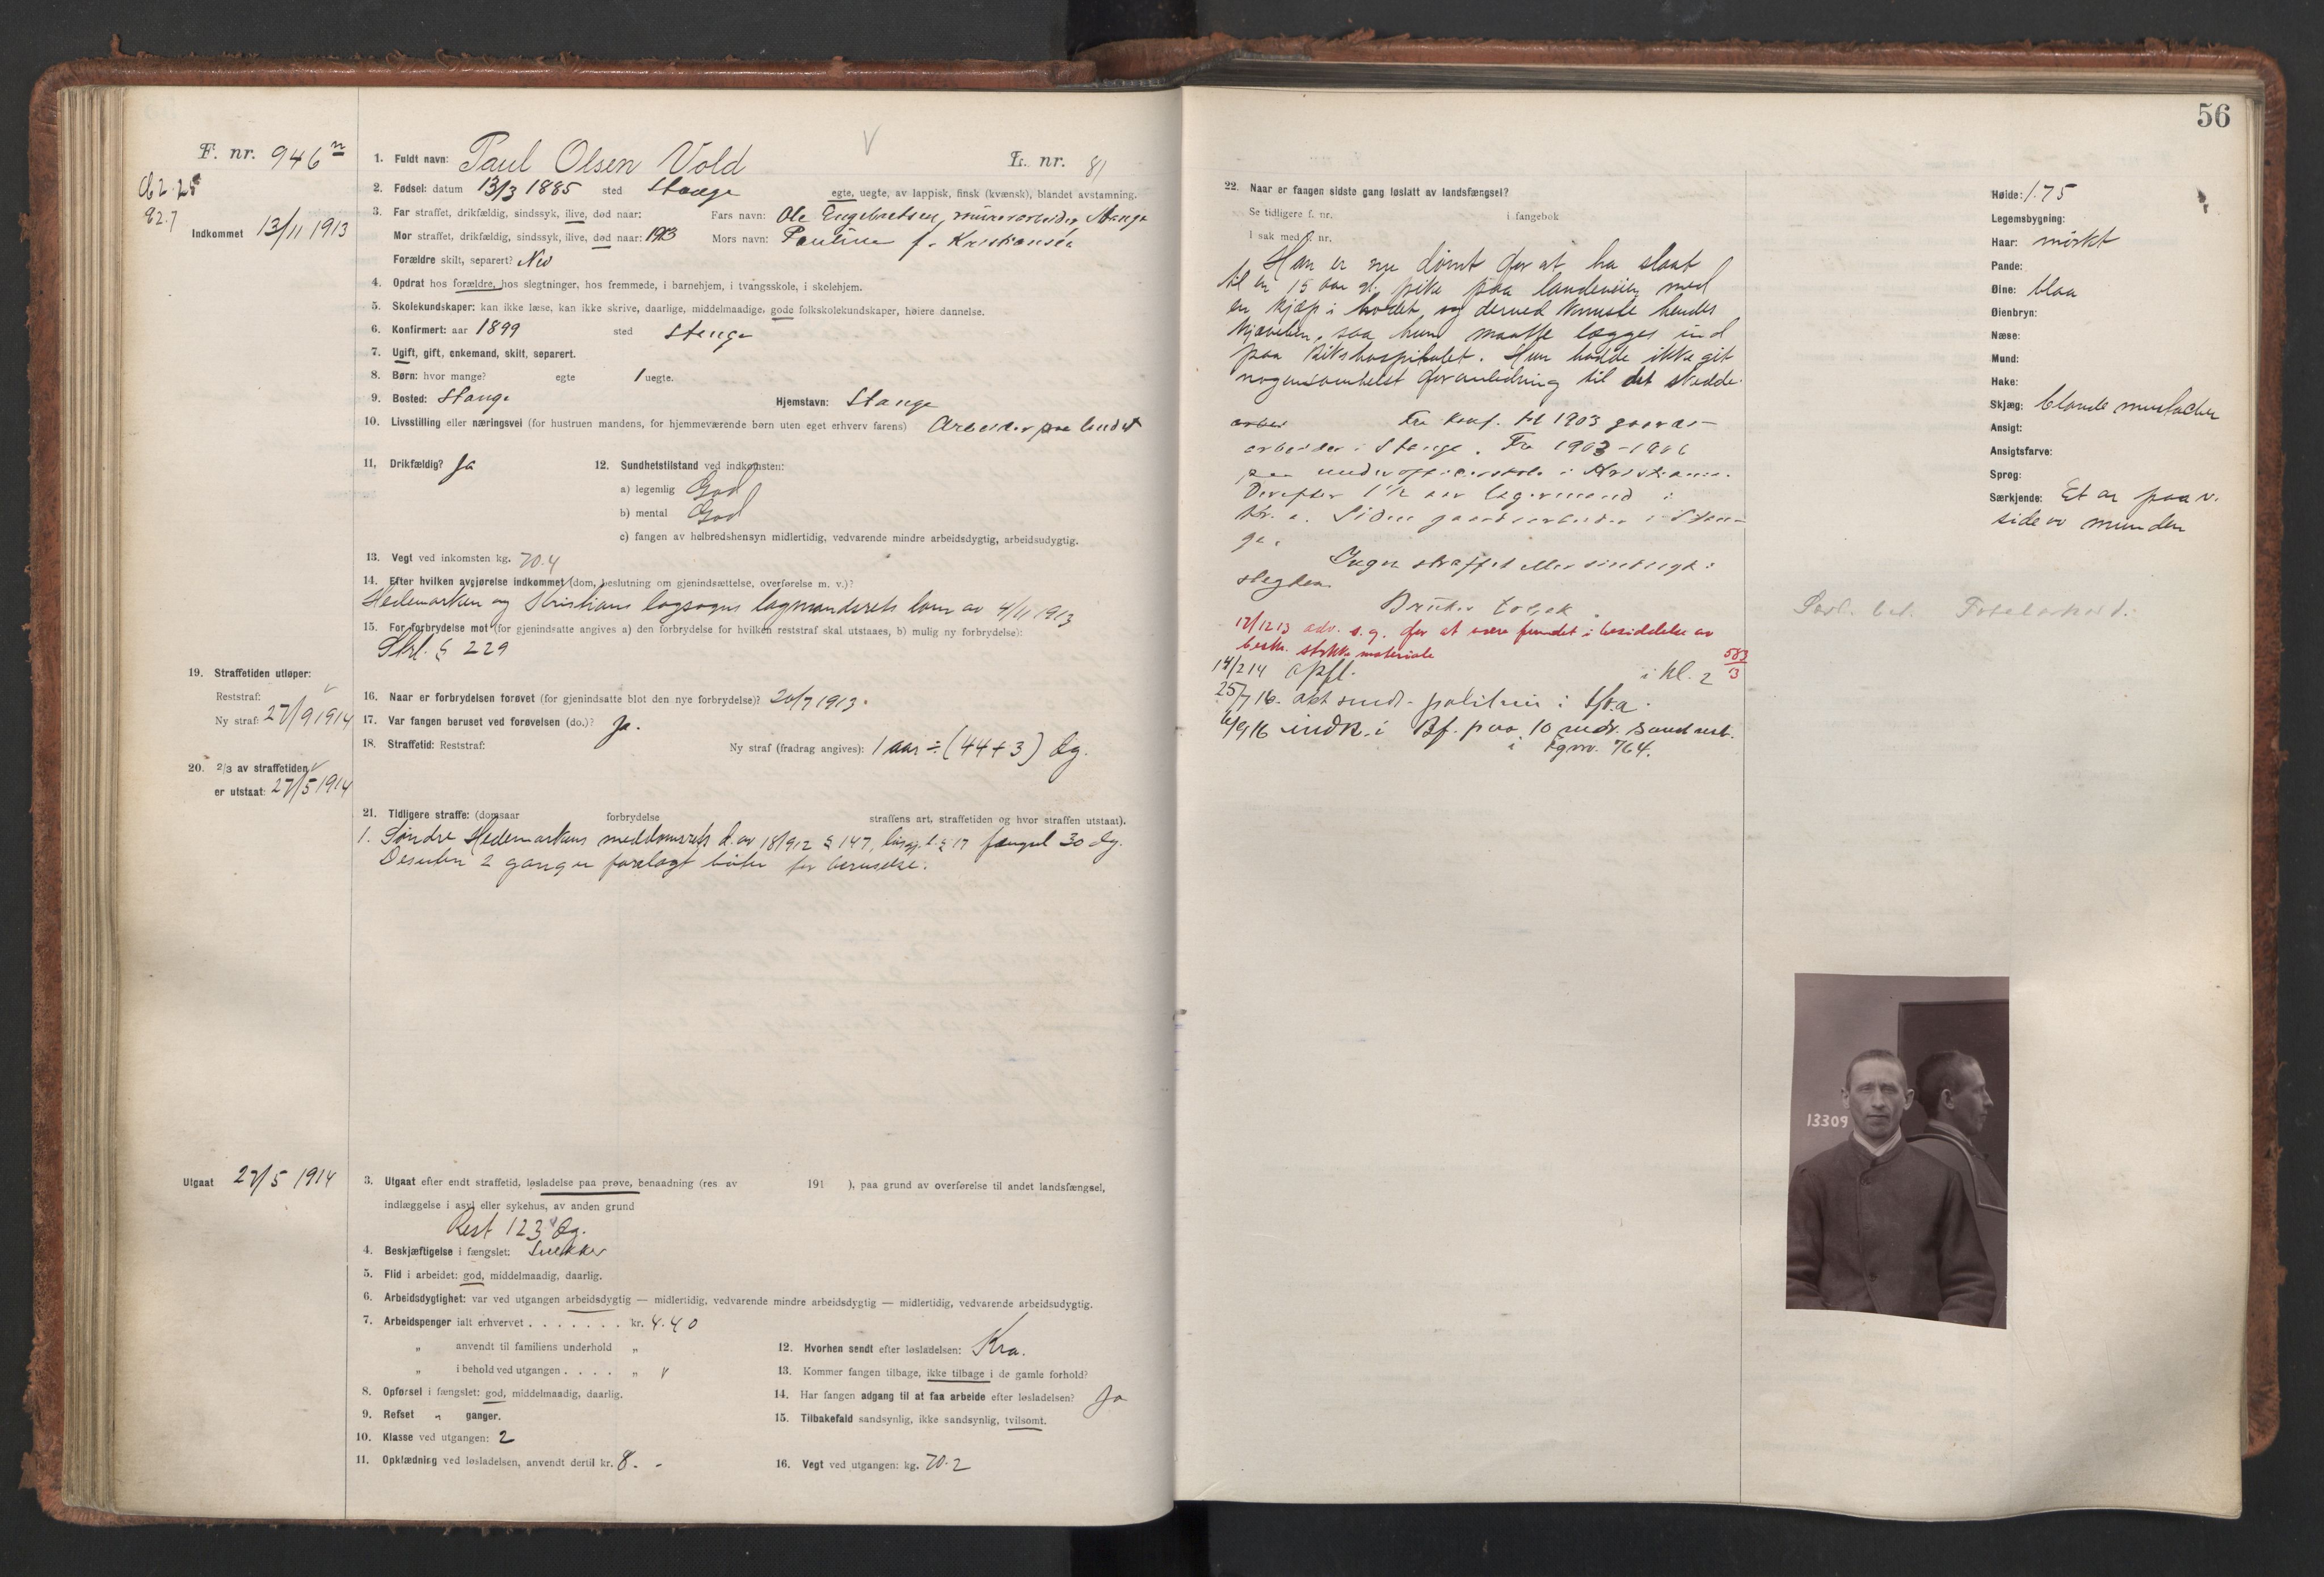 F. nr. 946
Indkommet 13/11 1913
1. Fuldt navn: Paul Olsen Vold L. nr. 81
2. Fødsel: datum 13/3 1885 sted Stange egte, uegte, av lappisk, finsk (kvænsk), blandet avstamning.
3. Far straffet, drikfældig, sindssyk, ilive, død naar: Fars navn: Ole Engebretsen, murerarbeider, Stange
Mor straffet, drikfældig, sindssyk, ilive, død naar: 1913 Mors navn: Pauline f. Kristiansen
Forældre skilt, separert? Nei
4. Opdrat hos forældre, hos slegtninger, hos fremmede, i barnehjem, i tvangsskole, i skolehjem.
5. Skolekundskaper: kan ikke læse, kan ikke skrive, daarlige, middelmaadige, gode folkskolekundskaper, høiere dannelse.
6. Konfirmert: aar 1899 sted Stange
7. Ugift, gift, enkemand, skilt, separert.
8. Børn: hvor mange? egte 1 uegte.
9. Bosted: Stange Hjemstavn: Stange
10. Livsstilling eller næringsvei (for hustruen mandens, for hjemmeværende børn uten eget erhverv farens) Arbeider paa landet
11. Drikfældig? Ja 12. Sundhetstilstand ved indkomsten:
a) legemlig God
b) mental God
c) fangen av helbredshensyn midlertidig, vedvarende mindre arbeidsdygtig, arbeidsudygtig.
13. Vegt ved inkomsten kg. 70.4
14. Efter hvilken avgjørelse indkommet (dom, beslutning om gjenindsættelse, overførelse m. v.)?
Hedemarken og Kristians lagsogns lagmandsrets dom av 4/11 1913
15. For forbrydelse mot (for gjenindsatte angives a) den forbrydelse for hvilken reststraf skal utstaaes, b) mulig ny forbrydelse):
Strl. § 229
19. Straffetiden utløper:
Reststraf:
Ny straf: 27/9 1914
16. Naar er forbrydelsen forøvet (for gjenindsatte blot den nye forbrydelse)? 20/7 1913.
17. Var fangen beruset ved forøvelsen (do.)? Ja.
18. Straffetid: Reststraf: Ny straf (fradrag angives): 1 aar ÷ (44+3) dg.
20. 2/3 av straffetiden
er utstaat: 27/5 1914
21. Tidligere straffe: (domsaar forbrydelse straffens art, straffetiden og hvor straffen utstaat).
1. Søndre Hedemarkens meddomsrets d. av 18/9 12 § 147, løsg. l. § 17 fængsel 30 dg.
Desuten 2 ganger forelagt bøter for beruselse.
Utgaat 27/5 1914
3. Utgaat efter endt straffetid, løsladelse paa prøve, benaadning (res av 191 ), paa grund av overførelse til andet landsfængsel,
indlæggelse i asyl eller sykehus, av anden grund
Rest 123 dg.
4. Beskjæftigelse i fængslet: Snekker
5. Flid i arbeidet: god, middelmaadig, daarlig.
6. Arbeidsdygtighet: var ved utgangen arbeidsdygtig — midlertidig, vedvarende mindre arbeidsdygtig — midlertidig, vedvarende arbeidsudygtig.
7. Arbeidspenger ialt erhvervet . . . . . . . kr. 4.40
„ anvendt til familiens underhold „
„ i behold ved utgangen . . . . „
8. Opførsel i fængslet: god, middelmaadig, daarlig.
9. Refset „ ganger.
10. Klasse ved utgangen: 2
11. Opklædning ved løsladelsen, anvendt dertil kr. 8. -
12. Hvorhen sendt efter løsladelsen: Kra.
13. Kommer fangen tilbage, ikke tilbage i de gamle forhold?
14. Har fangen adgang til at faa arbeide efter løsladelsen? Ja
15. Tilbakefald sandsynlig, ikke sandsynlig, tvilsomt.
16. Vegt ved utgangen: kg. 70.2
56
22. Naar er fangen sidste gang løslatt av landsfængsel?
Se tidligere f. nr. i fangebok
I sak med f. nr.
Han er nu dømt for at ha slaat
til en 15 aar gl. pike paa landeveien med
en kjæp i hodet, og derved knuste hendes
kjæveben, saa hun maatte lægges ind
paa Rikshospitalet. Hun hadde ikke git
nogensomhelst foranledning til det skedde.
Fra konf. til 1903 gaards-
arbeider i Stange. Fra 1903-1906
paa underofficersskole i Kristiania.
Derefter 1 1/2 aar lagermand i
Kr.a. Siden gaardsarbeider i Stan-
ge.
Ingen straffet eller sindssyk i
slegten.
Bruker tobak.
12/12 13 adv. s. g. for at være fundet i besiddelse av
583/3
14/2 14 opfl. i kl. 2
25/7 16. akt sendt politiet i Kr.a.
6/9 16 indk. i Bf. paa 10 mdr.
i fgnr. 764.
Høide: 1.75
Legemsbygning:
Haar: mørkt
Pande:
Øine: blaa
Øienbryn:
Næse:
Mund:
Hake:
Skjæg: blonde mustacher
Ansigt:
Ansigtsfarve:
Sprog:
Særkjende: Et ar paa v.
side av munden
13309